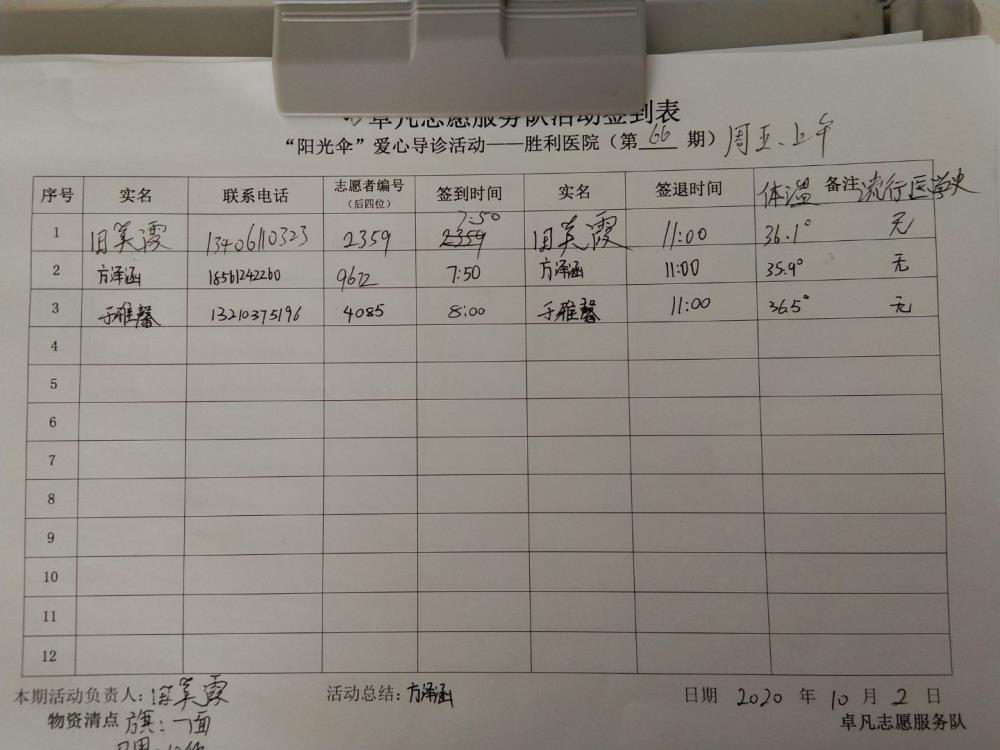 卓凡志愿服务队活动签到表
“阳光伞”爱心导诊活动——胜利医院（第 66 期） 周五.上午
序号 实名 联系电话 志愿者编号（后四位） 签到时间 实名 签退时间 体温 备注 流行医学史
1 美霞 13406110323 2359 2359 7:50 美霞 11:00 36.1° 无
2 方泽涵 18561242260 9622 7:50 方泽涵 11:00 35.9° 无
3 于雅馨 13210375196 4085 8:00 于雅馨 11:00 36.5° 无
4
5
6
7
8
9
10
11
12
本期活动负责人: 美霞 活动总结: 方泽涵 日期 2020 年 10 月 2 日
物资清点 旗:一面 卓凡志愿服务队